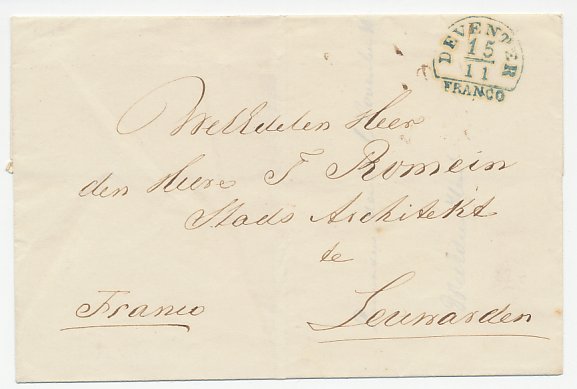 DEVENTER
15
11
FRANCO
WelEdelen Heer
den Heere T Romein
Stads Architekt
te
Franco Leeuwarden